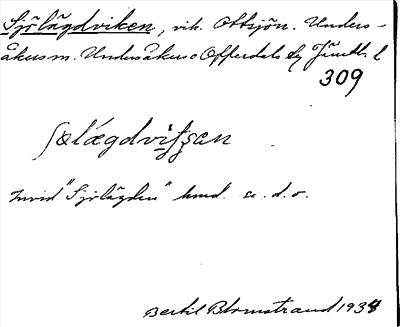 Sjölägdviken, vik. Ottsjön. Unders-
åkers sn. Undersåkers o Offerdals tg Jämtl. l
309
sølǽgdvit̠ʃan
Invid "Sjölägden" hmd. a. d. o.
Bertil Blomstrand 1934